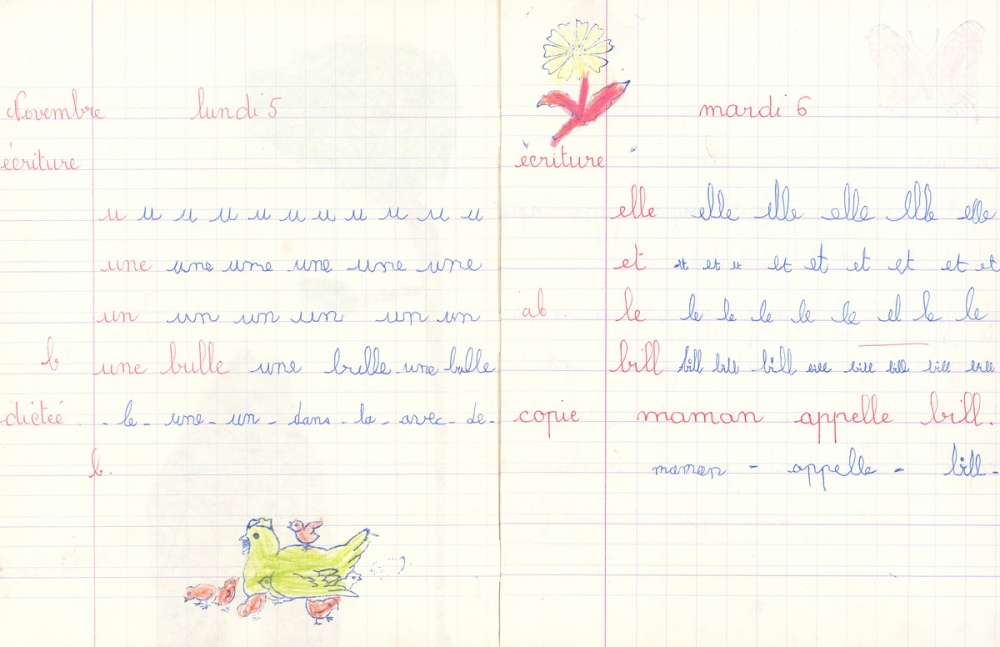 Novembre lundi 5
écriture
u u u u u u u u u u u
une une une une une une
un un un un un un
b une bulle une brille une bulle
diétéé - le - une - un - dans - la - avec - de -
b.
mardi 6
écriture
elle elle elle elle elle elle
et et et et et et et et et et
ab. le le le le le le el le le
bill bill bill bill bill bill bill bill bill
copie maman appelle bill.
maman - appelle - bill -